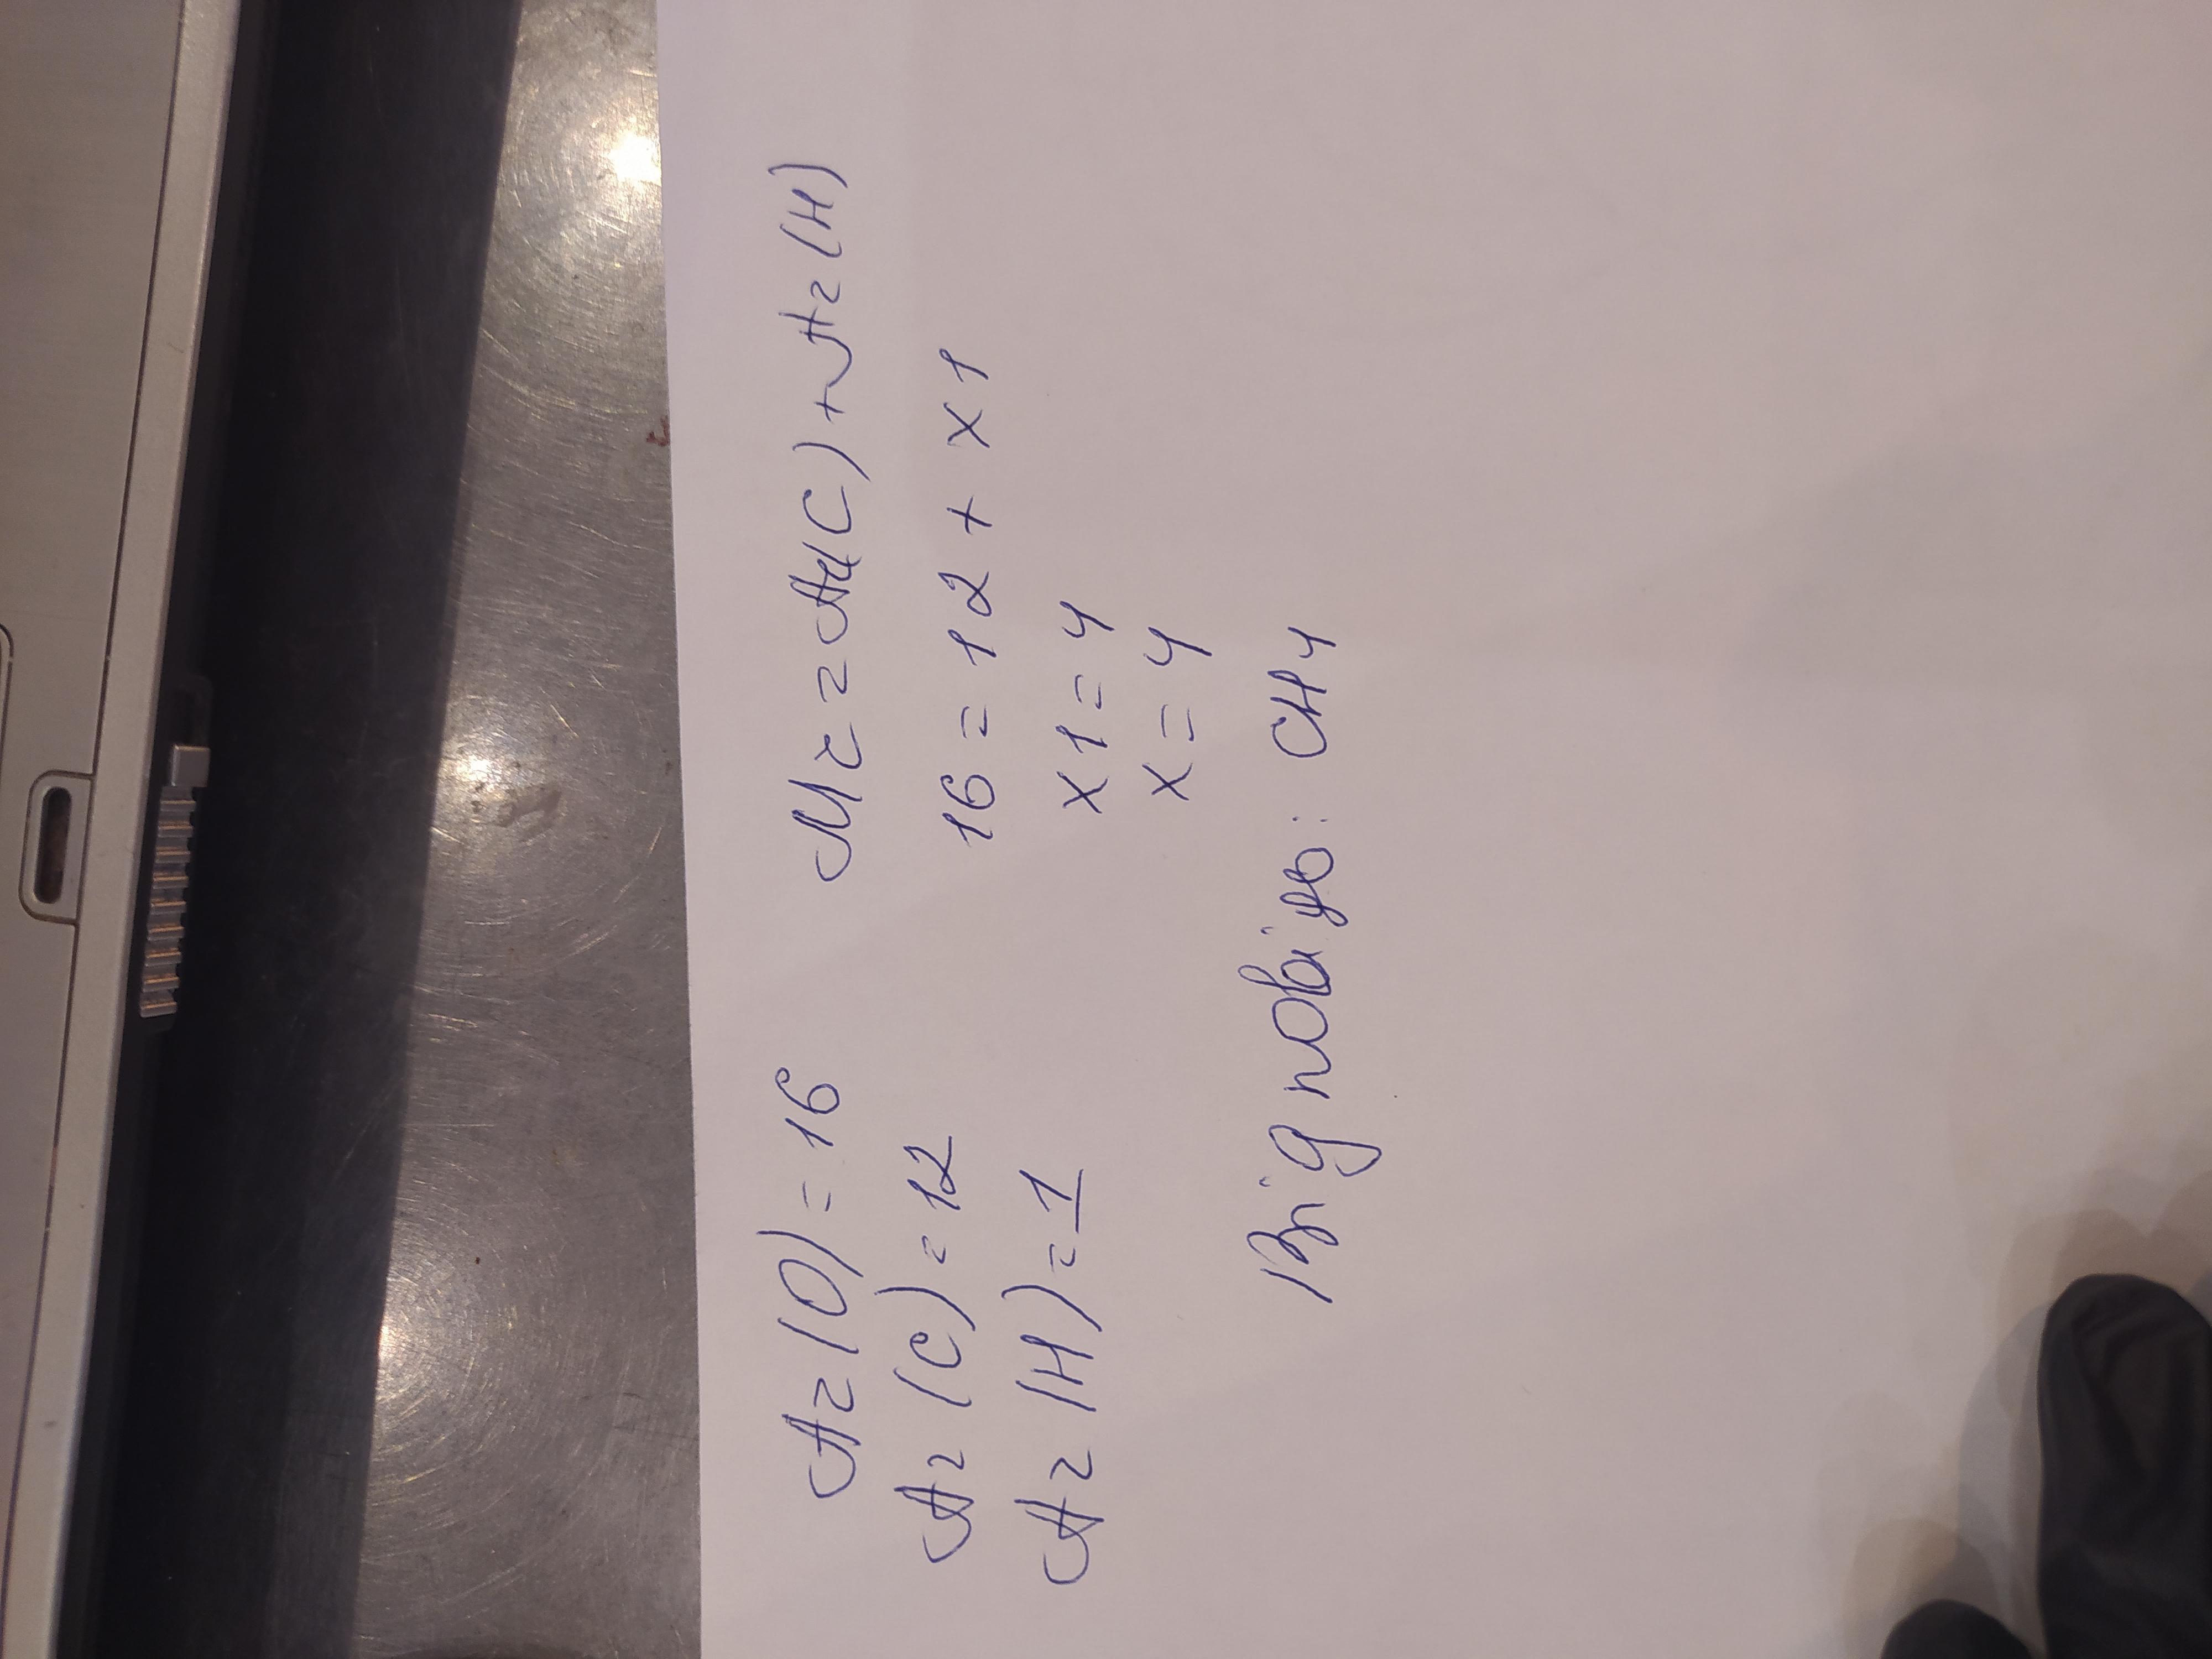 Ar(O)=16
Ar(C)=12
Ar(H)=1
Mr=Ar(C)+Ar(H)
16=12+x1
x1=4
x=4
Відповідь: CH4